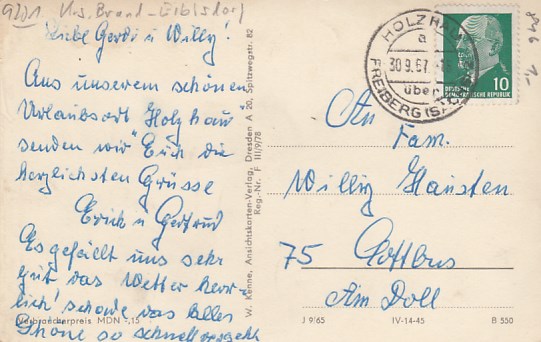 9201 Krs. Brand-Erbisdorf
Liebe Gerdi u Willy!
Aus unserem schönen
Urlaubsort Holzhau
senden wir Euch die
herzlichsten Grüsse
Erich u Gertrud
Es gefällt uns sehr
gut, das Wetter herr-
lich! schade das alles
schöne so schnell vergeht
Verbraucherpreis MDN -,15
W. Kenne, Ansichtskarten-Verlag, Dresden A 20, Spitzwegstr. 82
Reg.-Nr. F III/9/78
HOLZHAU
a
30.9.67.
über
FREIBERG (SACHS)
10
DEUTSCHE
DEMOKRATISCHE REPUBLIK
8846 1,-
An
Fam.
Willy Hausten
75 Cottbus
Am Doll
J 9/65 IV-14-45 B 550